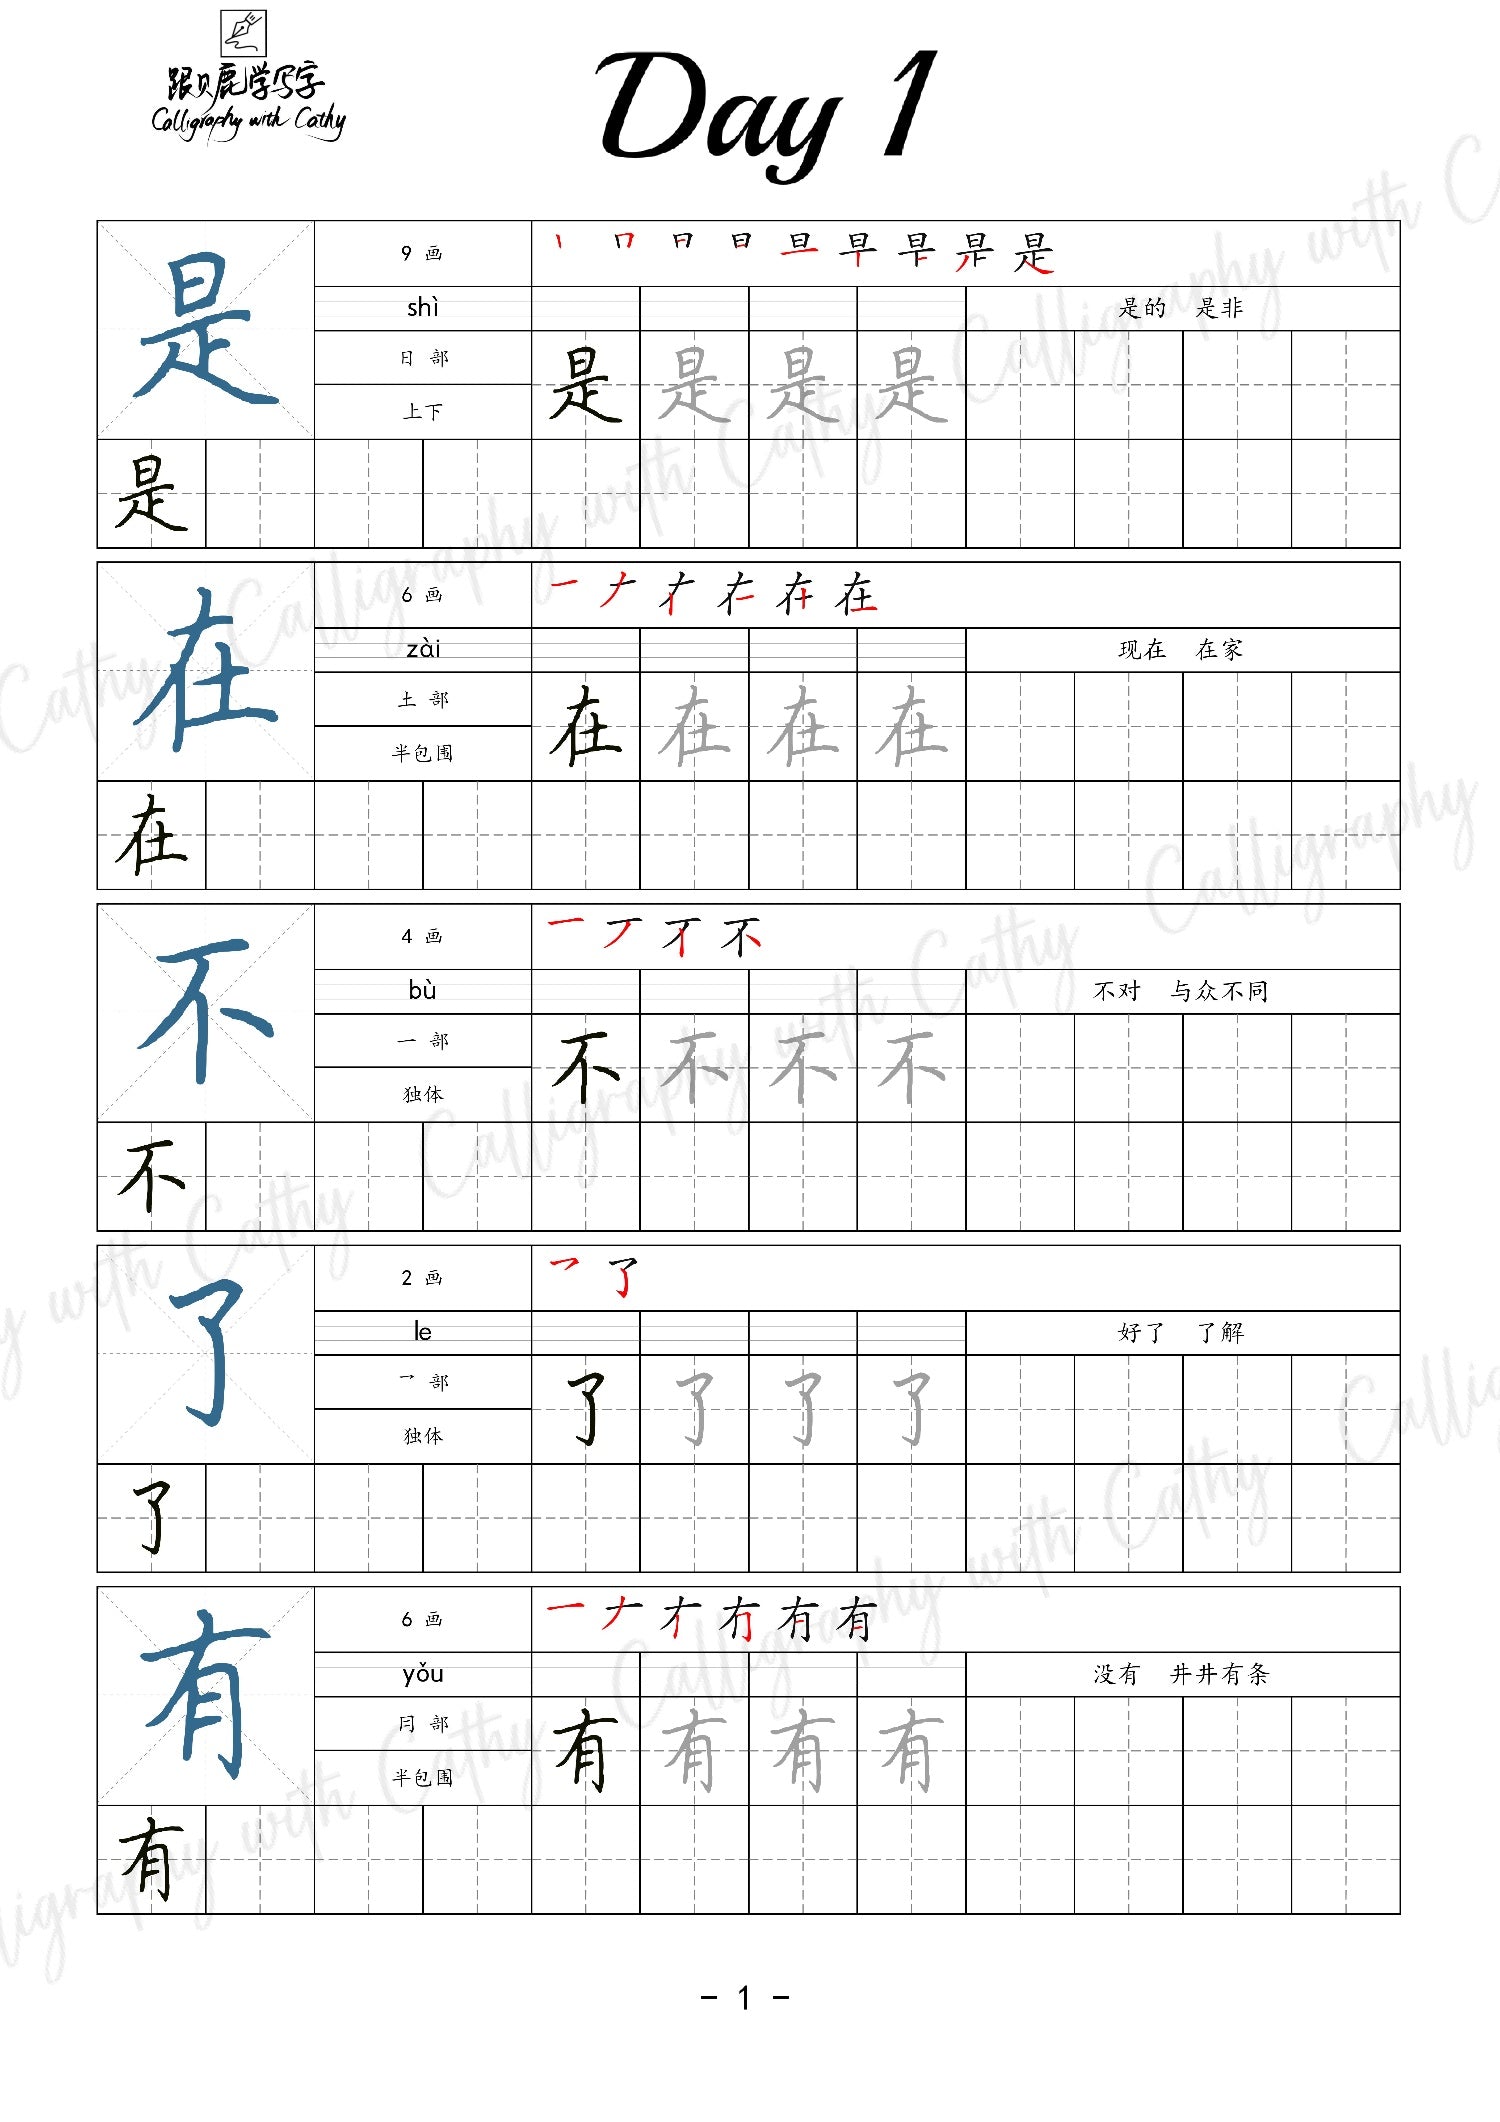 跟贝鹿学写字
Calligraphy with Cathy
Day 1
是
9 画
shì
日 部
上下
是的 是非
是 是 是 是
是
在
6 画
zài
土 部
半包围
现在 在家
在 在 在 在
在
不
4 画
bù
一 部
独体
不对 与众不同
不 不 不 不
不
了
2 画
le
乛 部
独体
好了 了解
了 了 了 了
了
有
6 画
yǒu
月 部
半包围
没有 井井有条
有 有 有 有
有
Calligraphy with Cathy
- 1 -